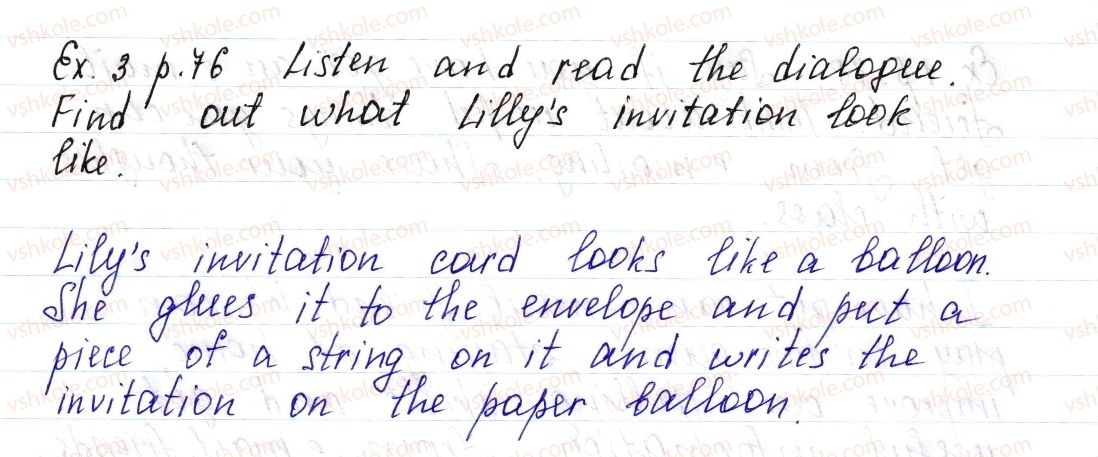 Ex. 3 p. 76 Listen and read the dialogue.
Find out what Lilly's invitation look
like.
Lily's invitation card looks like a balloon.
She glues it to the envelope and put a
piece of a string on it and writes the
invitation on the paper balloon.